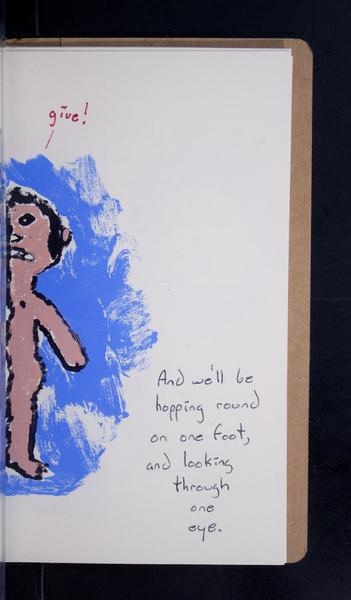 give!
And we'll be
hopping round
on one foot,
and looking
through
one
eye.